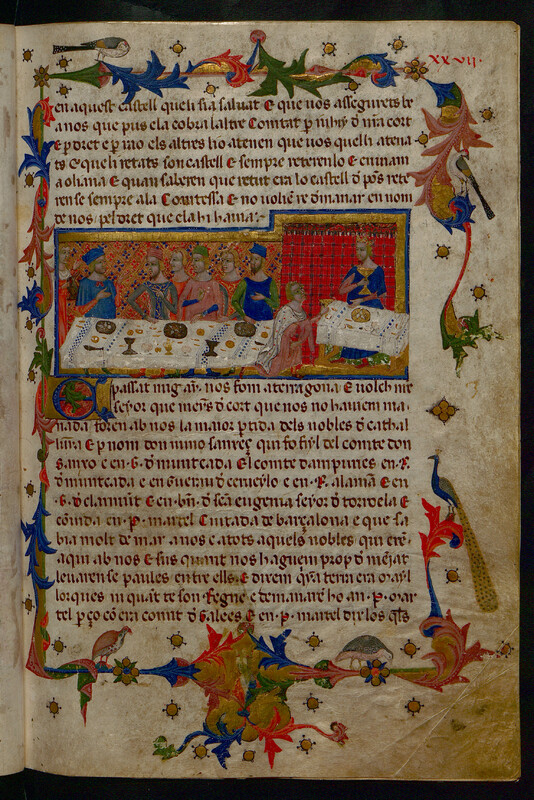 xxvij.
en aquest castell que li sia saluat E que uos assegurets be
a nos que pus ela cobra laltre Comtat p niny d nra cort
E p dret e p rao els altres ho atenen que uos quelli atena
ts E queli retats son castell E sempre reterenlo E enuiam
a oliana E quan saberen que retut era lo castell d pos rete
rense sempre ala Comtessa E no uolgre romanar en nom
de nos pel dret que ela hi hauia
E passat mig ay nos fom a terragona E uolch nre
seyor que meys d cort que nos no hauiem ma
nada foren ab nos la maior ptida dels nobles d cathal
unya E p nom don nuno sanxeç qui fo fiyl del comte don
sanxo e en G d muntcada El comte dampuries en R
d muntcada e en Guerau d cerueylo e en R alama E en
G d claramut E en bn d sca eugenia seyor d torroela E
couida en P martel Ciutada de barçalona e que sa
bia molt de mar a nos e a tots aquels nobles qui eren
aqui ab nos E sus quant nos haguem prop d meiat
leuarense paules entre ells E direm qna terra era mayl
lorques ni quant te son Regne e demanare ho an P mar
tel p ço co era comit d Galees E en P martel dix los qls